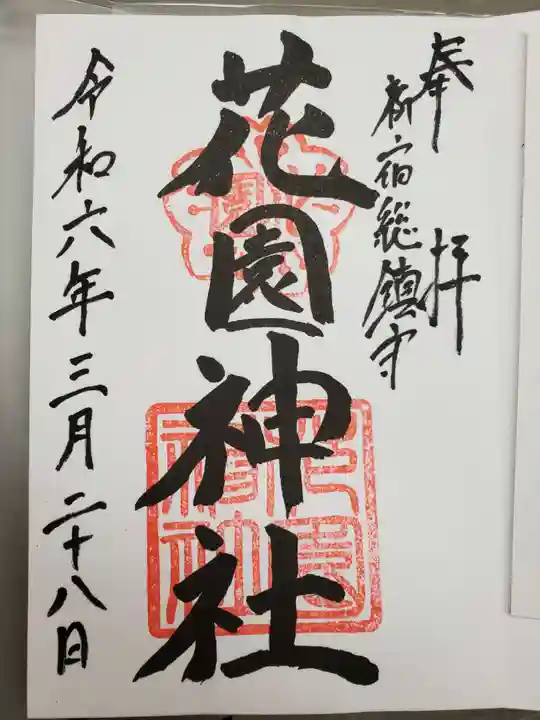 奉拝
新宿総鎮守
花園神社
令和六年三月二十八日
花園神社